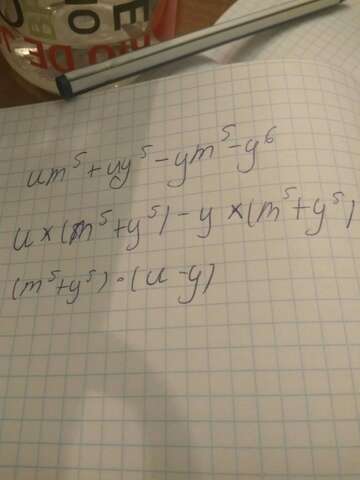 NO
E
DE
um⁵+uy⁵-ym⁵-y⁶
u×(m⁵+y⁵)-y×(m⁵+y⁵)
(m⁵+y⁵)·(u-y)